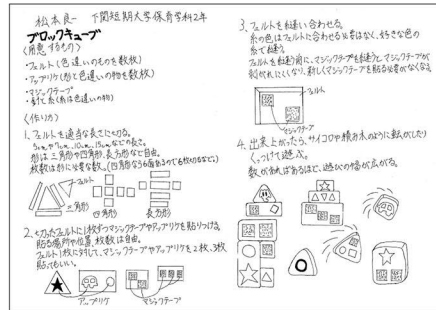 松本良一 下関短期大学保育学科2年
ブロックキューブ
〈用意するもの〉
・フェルト(色違いのものを数枚)
・アップリケ(形と色違いの物を数枚)
・マジックテープ
・針と糸(糸は色違いの物)
〈作り方〉
1、フェルトを適当な長さに切る。
5cmや7cm、10cm、15cmなどの長さ。
形は三角形や四角形、長方形など自由。
枚数は形に必要な数。(四角形なら6面あるので6枚切るなど。)
フェルト
三角形
四角形
長方形
2、切ったフェルトに1枚ずつマジックテープやアップリケを貼りつける。
貼る場所や位置、枚数は自由。
フェルト1枚に対して、マジックテープやアップリケを2枚、3枚
貼ってもいい。
アップリケ
マジックテープ
3、フェルトを縫い合わせる。
糸の色はフェルトに合わせる必要はなく、好きな色の
糸で縫う。
フェルトを縫う前に、マジックテープを縫うとマジックテープが
剥がれにくくなり、新しくマジックテープを貼る必要がなくなる。
フェルト
マジックテープ
4、出来上がったら、サイコロや積み木のように転がしたり
くっつけて遊ぶ。
数が有ればあるほど、遊びの幅が広がる。